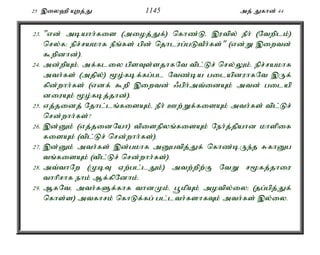 25 இலைஹி யுறத்து 1145 அத் துகான் 44
23. "என் அடியார்களை (அழைத்துக்) கொண்டு, இரவில் நீர் (வேறிடம்)
செல்க: நிச்சயமாக நீங்கள் பின் தொடரப்படுவீர்கள்" (என்று இறைவன்
கூறினான்).
24. அன்றியும், அக்கடலை பிளவுள்ளதாகவே விட்டுச் செல்லும், நிச்சயமாக
அவர்கள் (அதில்) மூழ்கடிக்கப்பட வேண்டிய படையினராகவே இருக்
கின்றார்கள் (எனக் கூறி இறைவன் ஃபிர்அவ்னையும் அவன் படையி
னரையும் மூழ்கடித்தான்).
25. எத்தனைத் தோட்டங்களையும், நீர் ஊற்றுக்களையும் அவர்கள் விட்டுச்
சென்றார்கள்?
26. இன்னும் (எத்தனையோ) விளைநிலங்களையும் நேர்த்தியான மாளிகை
களையும் (விட்டுச் சென்றார்கள்).
27. இன்னும் அவர்கள் இன்பமாக அனுபவித்துக் கொண்டிருந்த சுகானுப
வங்களையும் (விட்டுச் சென்றார்கள்).
28. அவ்வாறே (முடிவு ஏற்பட்டதும்) அவற்றிற்கு வேறு சமூகத்தாரை
வாரிசாக நாம் ஆக்கினோம்.
29. ஆகவே, அவர்களுக்காக வானமும், பூமியும் அழவில்லை; (தப்பித்துக்
கொள்ள) அவகாசம் கொடுக்கப் பட்டவர்களாகவும் அவர்கள் இல்லை.